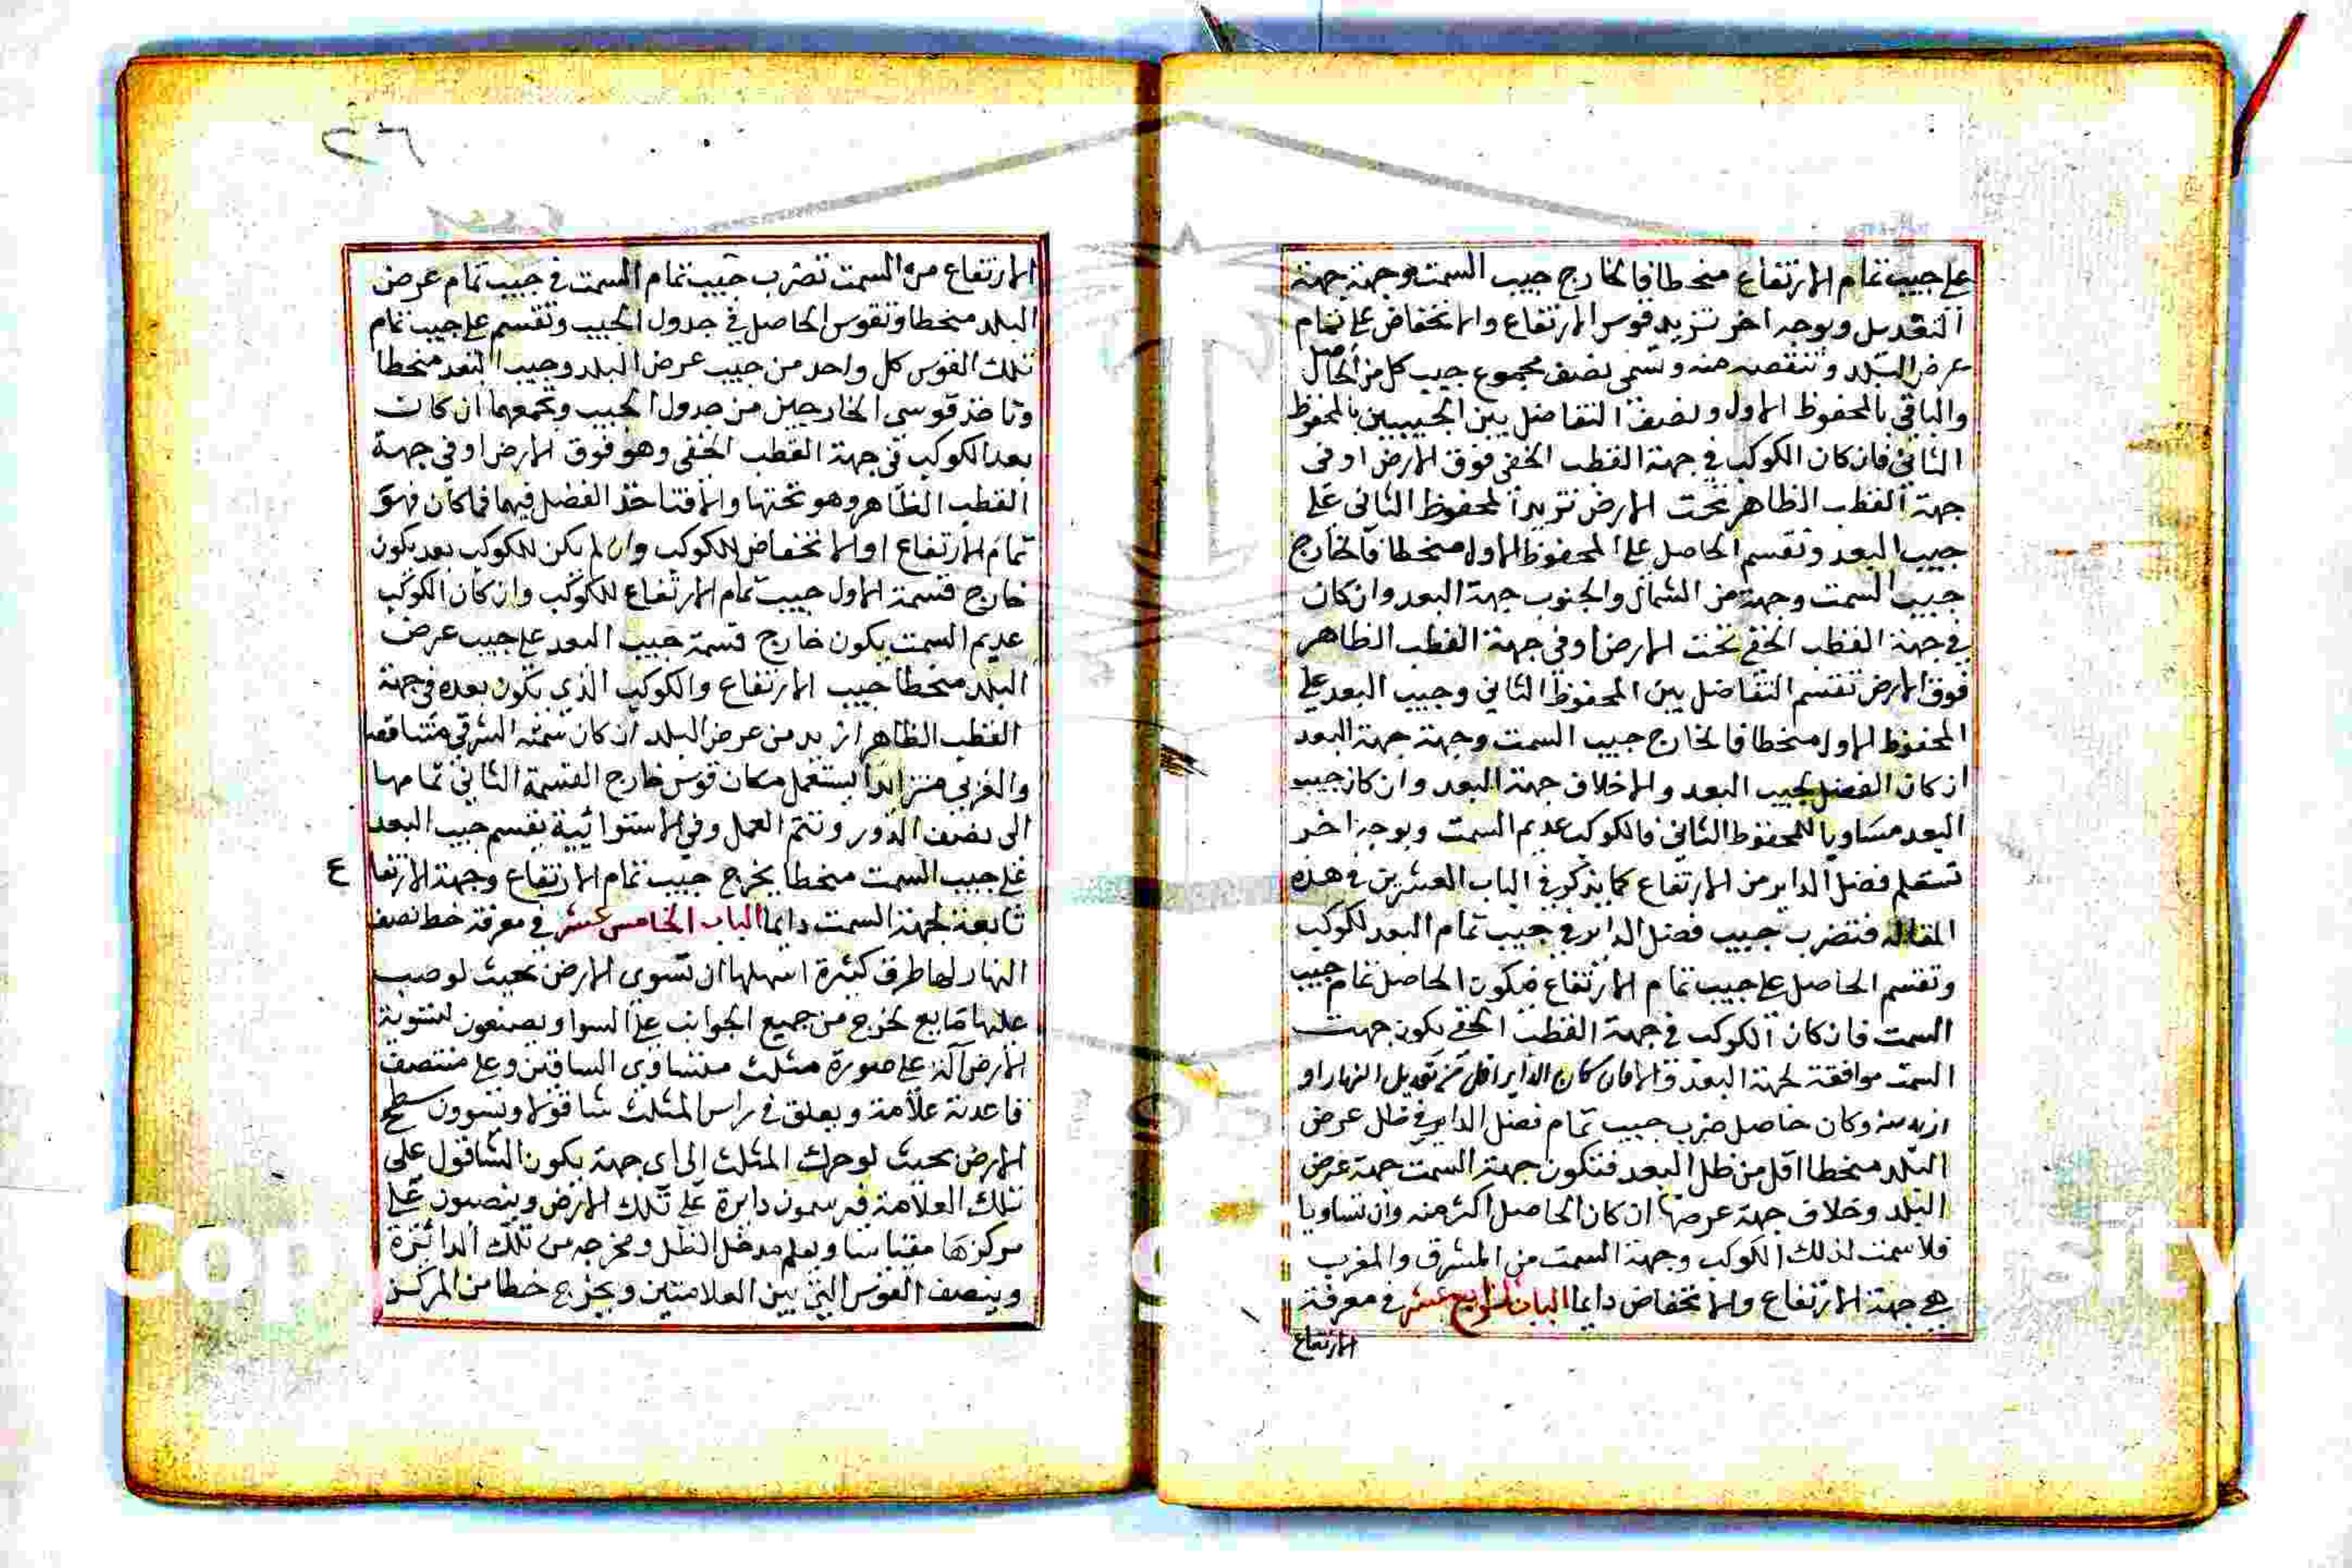 على جيب تمام الارتفاع منحطا فالخارج جيب السمت وجهته جهة
التعديل وبوجه اخر تزيد قوس الارتفاع والانخفاض على تمام
عرض البلد وتنقصه منه وتسمى نصف مجموع جيب كل من الحاصل
والباقي بالمحفوظ الاول ونصف التفاضل بين الجيبين بالمحفوظ
الثاني فان كان الكوكب في جهة القطب الخفي فوق الارض او في
جهة القطب الظاهر تحت الارض تزيد المحفوظ الثاني على
جيب البعد وتقسم الحاصل على المحفوظ الاول منحطا فالخارج
جيب السمت وجهته من الشمال والجنوب جهة البعد وان كان
في جهة القطب الخفي تحت الارض او في جهة القطب الظاهر
فوق الارض تقسم التفاضل بين المحفوظ الثاني وجيب البعد على
المحفوظ الاول منحطا فالخارج جيب السمت وجهته جهة البعد
ان كان الفضل لجيب البعد والا خلاف جهة البعد وان كان جيب
البعد مساويا للمحفوظ الثاني فالكوكب عديم السمت وبوجه اخر
تستعلم فضل الداير من الارتفاع كما يذكر في الباب العشرين في هذه
المقالة فتضرب جيب فضل الداير في جيب تمام البعد لكوكب
وتقسم الحاصل على جيب تمام الارتفاع فيكون الحاصل تمام جيب
السمت فان كان الكوكب في جهة القطب الخفي يكون جهت
السمت موافقة لجهة البعد والا فان كان الداير اقل من تعديل النهار او
ازيد منه وكان حاصل ضرب جيب تمام فضل الداير في ظل عرض
البلد منحطا اقل من ظل البعد فتكون جهة السمت جهة عرض
البلد وخلاف جهة عرضها ان كان الحاصل اكثر منه وان تساويا
فلا سمت لذلك الكوكب وجهة السمت من المشرق والمغرب
هي جهة الارتفاع والانخفاض دايما الباب الرابع عشر في معرفة
الارتفاع
٢٦
الارتفاع من السمت تضرب جيب تمام السمت في جيب تمام عرض
البلد منحطا وتقوس الحاصل في جدول الجيب وتقسم على جيب تمام
تلك القوس كل واحد من جيب عرض البلد وجيب البعد منحطا
وتاخذ قوسي الخارجين من جدول الجيب وتجمعهما ان كان
بعد الكوكب في جهة القطب الخفي وهو فوق الارض او في جهة
القطب الظاهر وهو تحتها والا فتاخذ الفضل فيهما فما كان فهو
تمام الارتفاع او الانخفاض للكوكب وان لم يكن للكوكب بعد يكون
خارج قسمة الاول جيب تمام الارتفاع للكوكب وان كان الكوكب
عديم السمت يكون خارج قسمة جيب البعد على جيب عرض
البلد منحطا جيب الارتفاع والكوكب الذي يكون بعده في جهة
القطب الظاهر ازيد من عرض البلد ان كان سمته الشرقي متناقصا
والغربي متزايدا يستعمل مكان قوس خارج القسمة الثاني تمامها
الى نصف الدور وتتم العمل وفي الاستوائية يقسم جيب البعد
على جيب السمت منحطا يخرج جيب تمام الارتفاع وجهة الارتفا
ع
تابعة لجهة السمت دايما الباب الخامس عشر في معرفة خط نصف
النهار لها طرق كثيرة اسهلها ان تسوى الارض بحيث لو صب
عليها مايع لخرج من جميع الجوانب على السوا ويصنعون لتسوية
الارض آلة على صورة مثلث متساوي الساقين وعلى منتصف
قاعدته علامة ويعلق في راس المثلث شاقولا ويسوون سطح
الارض بحيث لو حرك المثلث الى اي جهة يكون الشاقول على
تلك العلامة فيرسمون دايرة على تلك الارض وينصبون على
مركزها مقياسا ويعلم مدخل الظل ومخرجه من تلك الدائرة
وينصف القوس التي بين العلامتين ويخرج خطا من المركز